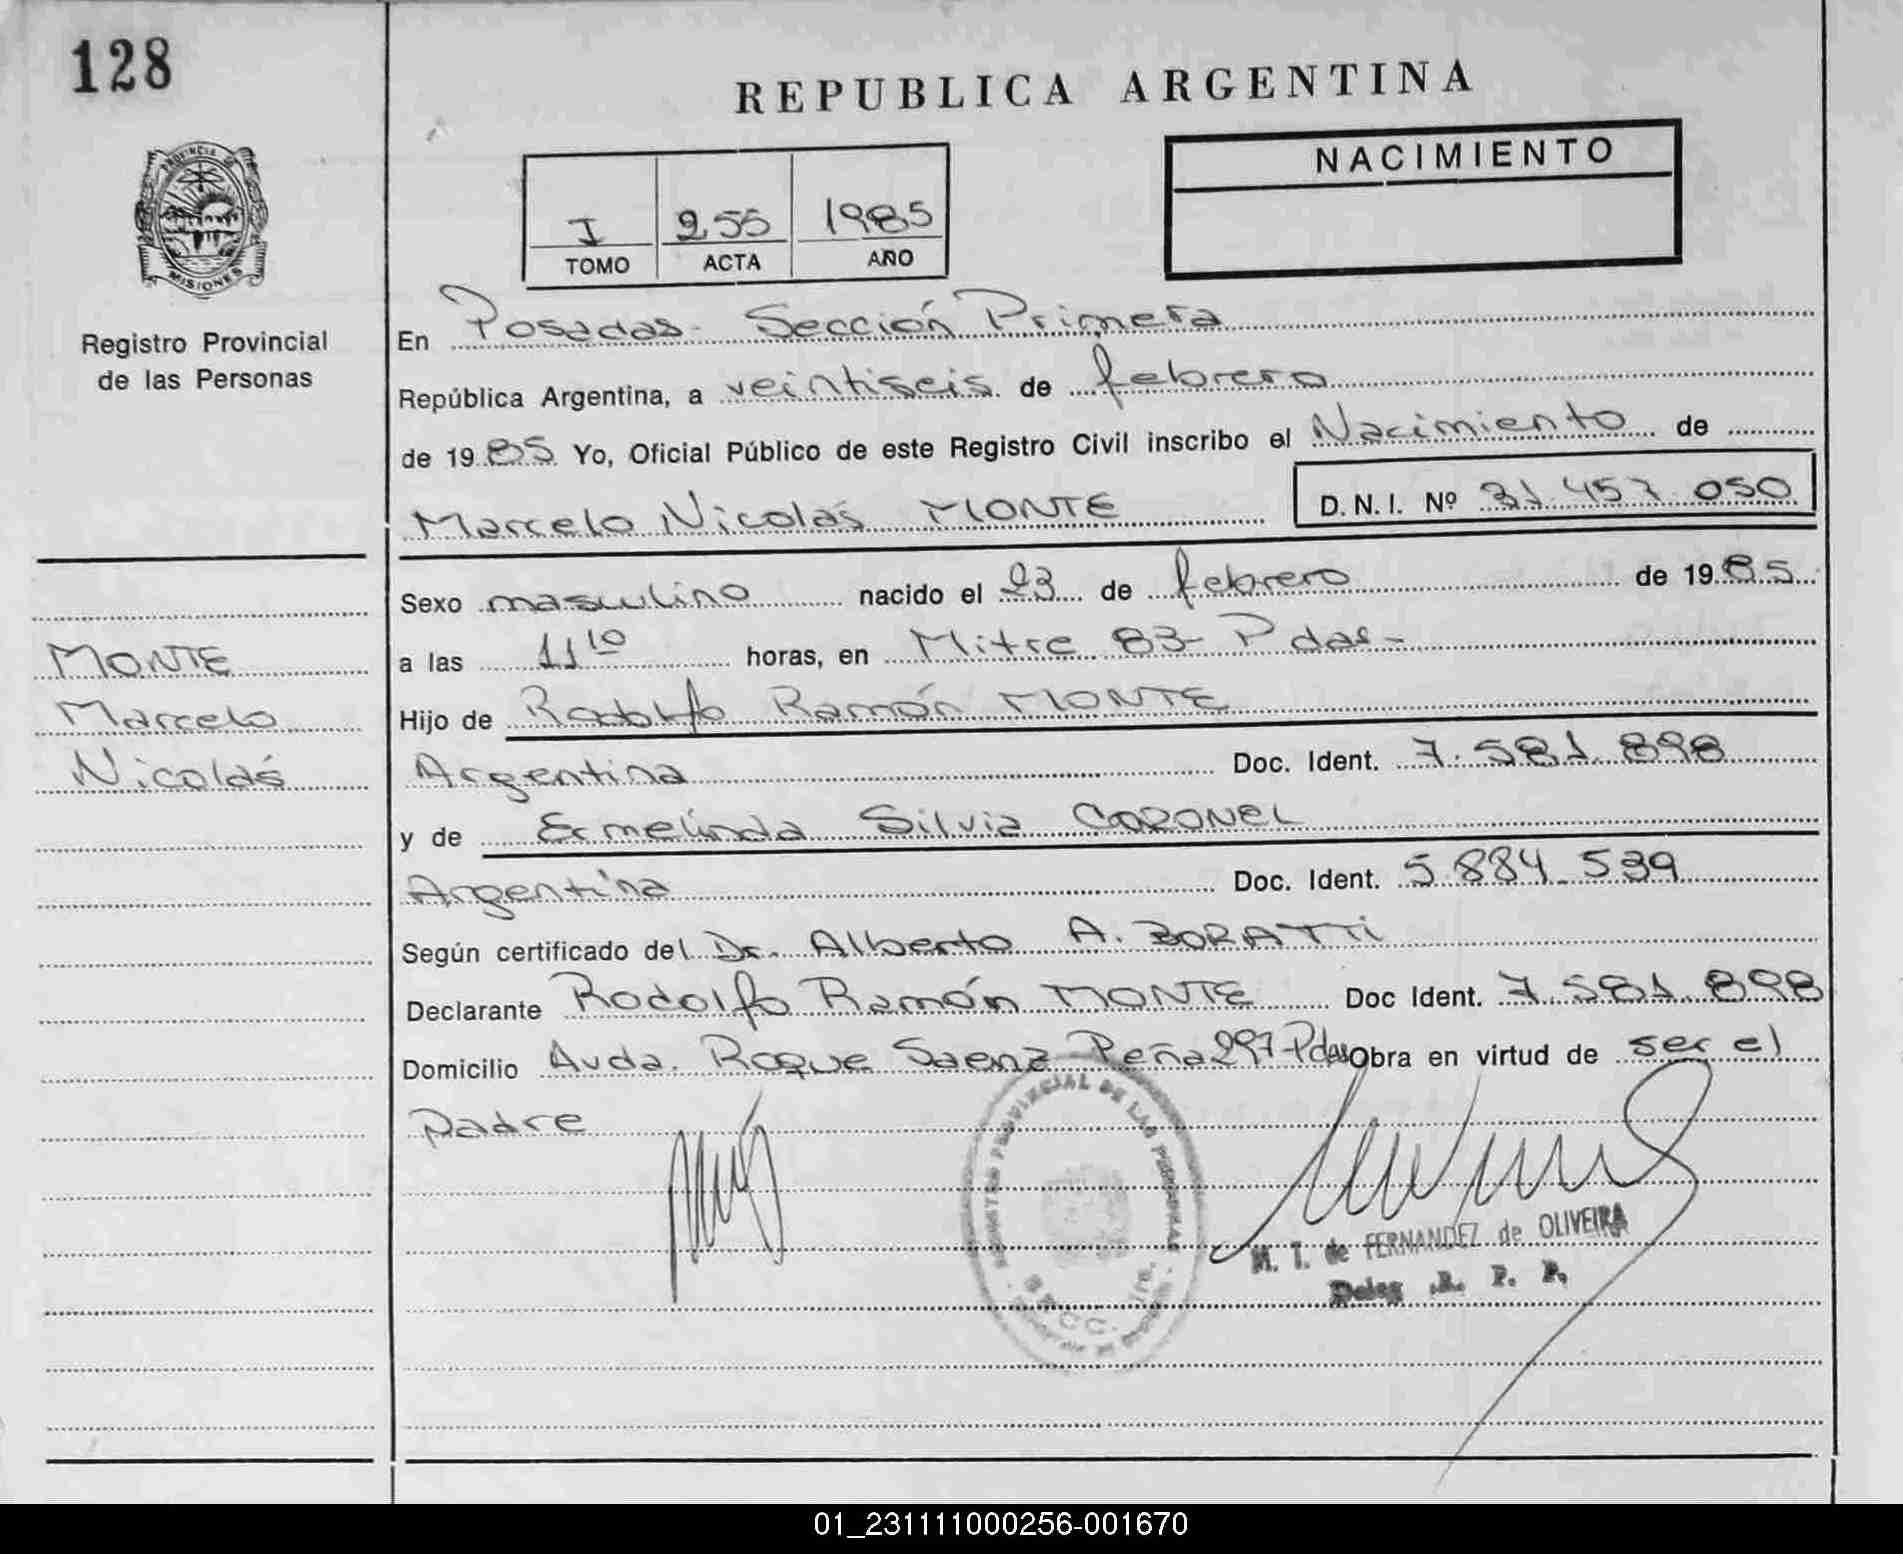 128
REPUBLICA ARGENTINA
NACIMIENTO
I 255 1985
TOMO ACTA AÑO
PROVINCIA DE
MISIONES
Registro Provincial
de las Personas
En Posadas - Sección Primera
República Argentina, a veintiseis de febrero
de 1985 Yo, Oficial Público de este Registro Civil inscribo el Nacimiento de
Marcelo Nicolás MONTE D.N.I. Nº 31.457.050
Sexo masculino nacido el 23 de febrero de 1985
a las 11 10 horas, en Mitre 83 - Pdas -
Hijo de Rodolfo Ramón MONTE
Argentina Doc. Ident. 7.581.898
y de Ermelinda Silvia CORONEL
Argentina Doc. Ident. 5.884.539
Según certificado del Dr. Alberto A. BORATTI
Declarante Rodolfo Ramón MONTE Doc Ident. 7.581.898
Domicilio Avda. Roque Saenz Peña 297 - Pdas Obra en virtud de ser el
padre
MONTE
Marcelo
Nicolás
REGISTRO PROVINCIAL DE LAS PERSONAS
M. T. de FERNANDEZ de OLIVEIRA
Deleg. R. P. P.
01_231111000256-001670